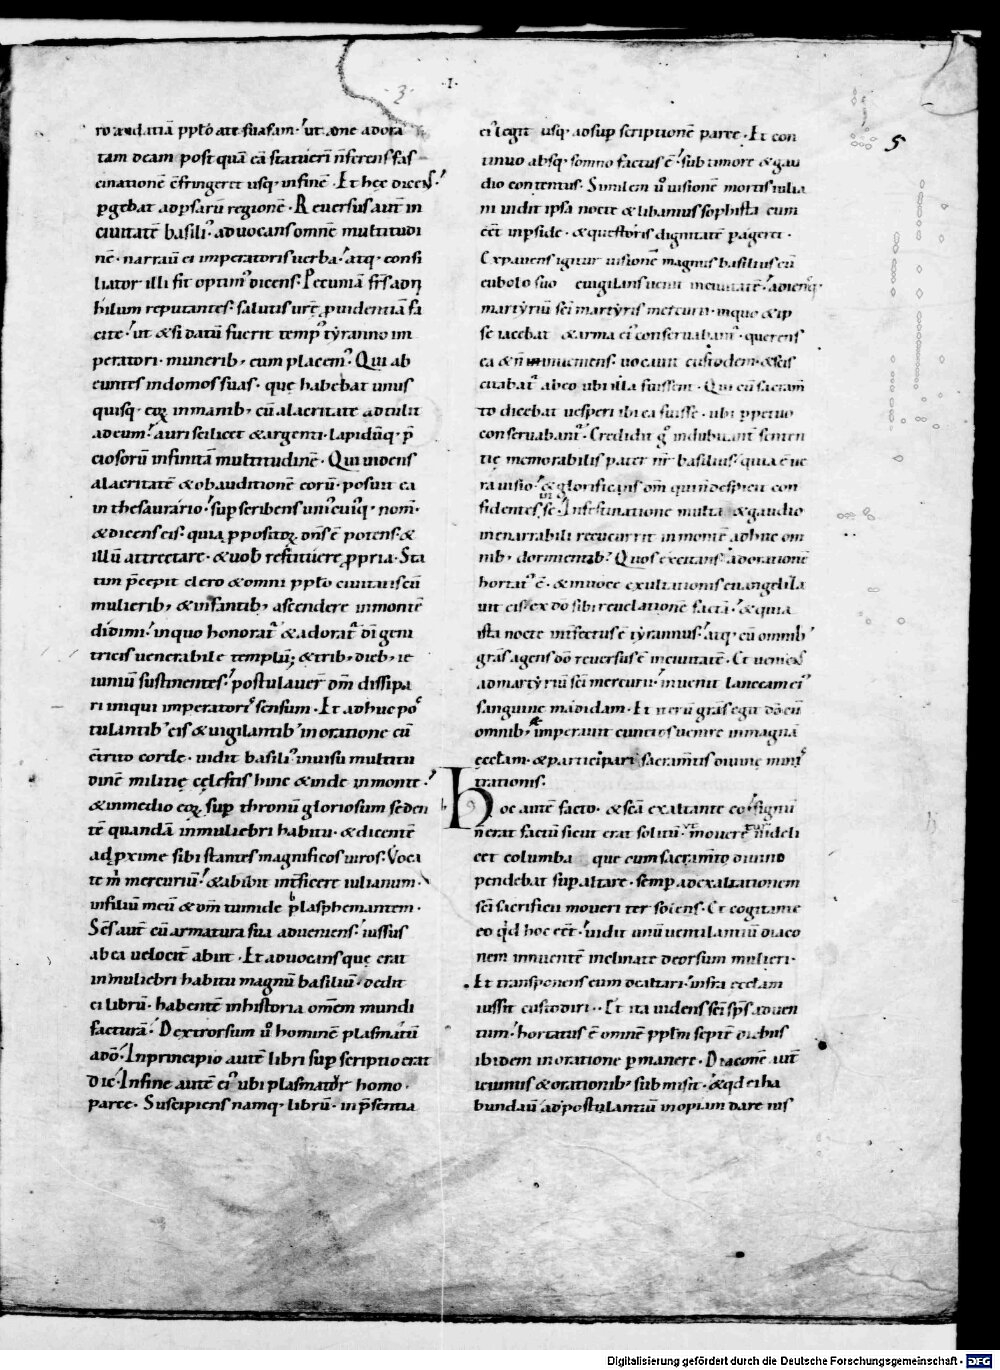 ·I·
3
5
ro audatiā pp̄lō a te suasam· ut ęne adora
tam deam post quā eā statueri n̄ferens fas
cinationē c̄fringeret usq; infinē· Et hęc dicens·
p̱gebat ad psarū regionē· Reuersus aut̄ in
ciuitatē basili᾽ aduocans omnē multitudi
nē· narrauī ei imperatoris uerba· atq; consi
liator illi fit optim᾽ dicens· Pecuniam frs̄ adn
hilum reputantes· salutis urę̄ prouidentiā fa
cite· ut & si datū fuerit temp᾽ tẏranno im
peratori· munerib; eum placem᾽· Qui ab
euntes in domos suas· quę habebat unus
quisq; eoꝝ in manib; cū alacritate adtulit
ad eum· auri scilicet & argenti· lapidūq; p̄
ciosorū infinitā multitudinē· Qui uidens
alacritatē & obauditionē eorū· posuit ea
in thesaurario· sup scribens uni᾽cui᾽q; nom̄·
& dicens eis· quia p̱positoꝝ dn̄s ē potens· &
illū attrectare· & uob̄ restituere p̱pria· Sta
tim p̄cepit clero & omni pp̄lō ciuitatis cū
mulierib; & infantib; ascendere in montē
didimi· in quo honorat᾽ & adorat᾽ dī geni
tricis uenerabile templū; & trib; dieb; ie
iuniū sustinentes· postulauer̄ dm̄ dissipa
ri iniqui imperatori᾽ sensum· Et adhuc po᾽
tulantib᾽ eis & uigilantib᾽ in oratione cū
c̄trito corde· uidit basili᾽ in uisu multitu
dinē militię cęlestis hinc & inde in monte·
& in medio eoꝝ sup thronū gloriosum seden
tē quandā in muliebri habitu· & dicentē
ad p̱xime sibi stantes magnificos uiros· Voca
te m̄ mercuriū· & abibit int̄ficere iulianum·
in filiū meū & dm̄ tumide blasphemantem·
Sēs aut̄ cū armatura sua adueniens· iussus
ab ea uelocit̄ abiit· Et aduocans quę erat
in muliebri habitu magnū basiliū· dedit
ei librū· habentē in historia omēm mundi
facturā· Dextrorsum ū hominē plasmatū
a dō· In principio autē libri sup scriptio erat
dic· In fine autē ei᾽ ubi plasmator homo·
parce· Suscipiens namq; librū· in p̄sentia
ei᾽ legit usq; ad sup scriptionē parce· Et con
tinuo absq; somno factus ē· sub timore & gau
dio contentus· Similem ū uisionē mortis iulia
ni uidit ipsa nocte & libanius sophista cum
eēt in pside· & questoris dignitatē p̱ageret·
Expauens igitur uisionē magnus basilius cū
eubolo suo euigilans uenit in ciuitatē· adienq;
martẏriū sc̄i martẏris mercurii· in quo & ip
se iacebat & arma ei᾽ conseruabant᾽· querens
ea & n̄ inueniens· uocauit custodem· & scis
citabat᾽ ab eo ubi illa fuissent· Qui cū sacram̄
to dicebat uesperi ibi ea fuisse· ubi p̱petuo
conseruabant᾽· Credidit g᾽ indubitant̄ senten
tię memorabilis pater nr̄ basilius· quia ē ue
ra uisio· & glorificans dm̄ qui n̄ despicit con
fidentes in se· In festinatione multa & gaudio
inenarrabili recucurrit in montē adhuc om
nib; dormientib;᾽ Quos excitans· ad orationē
hortat᾽ ē· & in uoce exultationis euangeliza
uit eis· ex dō sibi reuelationē factā· & quia
ista nocte int̄fectus ē tẏrannus· atq; cū omnib᾽
grās agens dō reuersus ē in ciuitatē· Et ueniens
ad martẏriū sc̄i mercurii· inuenit lanceam ei᾽
sanguine madidam· Et iterū grās egit dō cū
omnib; imperauit cunctos uenire in magnā
eccl̄am· & participari sacramtis diuinę mini᾽
trationis·
Hoc autē facto· & sc̄a exaltante eo· signū
n̄ erat factū sicut erat solitū· moueretur uideli
cet columba que cum sacramto diuino
pendebat sup altare· semp ad exaltationem
sc̄i sacrificii moueri ter solens· Et cogitante
eo qd̄ hoc eēt· uidit unū uentilantiū diaco
nem innuentē inclinate deorsum mulieri·
Et transponens eum de altari· infra eccl̄am
iussit custodiri·· Et ita uidens sc̄i sps̄ aduen
tum· hortatus ē omnē pplm̄ septē diebus
ibidem in oratione p̱manere· Diaconē aut̄
ieiuniis & orationib; submisit· & qd ei ha
bundauī ad postulantiū inopiam dare iussit
Digitalisierung gefördert durch die Deutsche Forschungsgemeinschaft - DFG